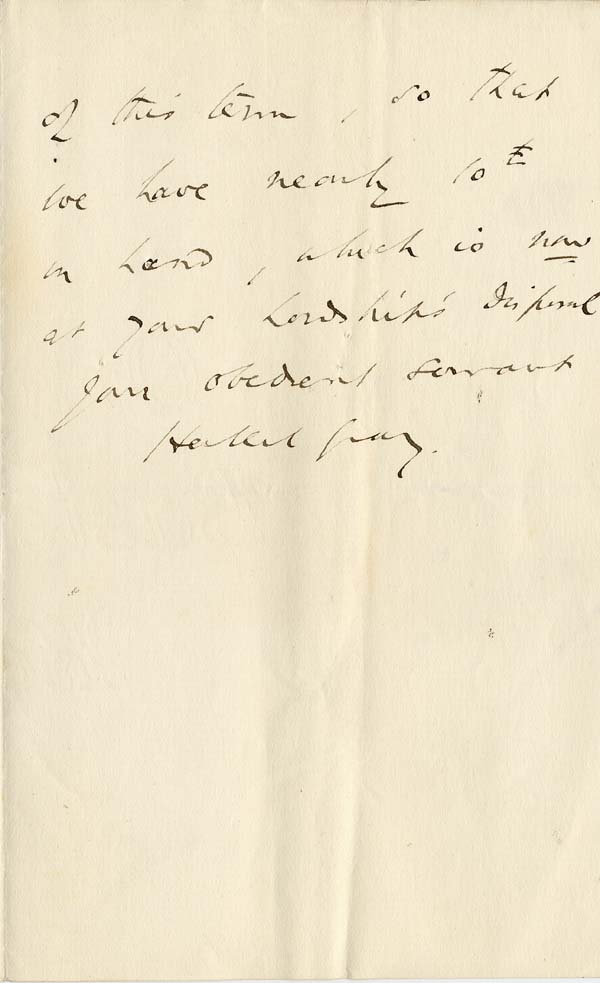 of this term, so that
we have nearly 10£
in hand, which is now
at your Lordship's disposal
Your obedient servant
Herbert Gray.